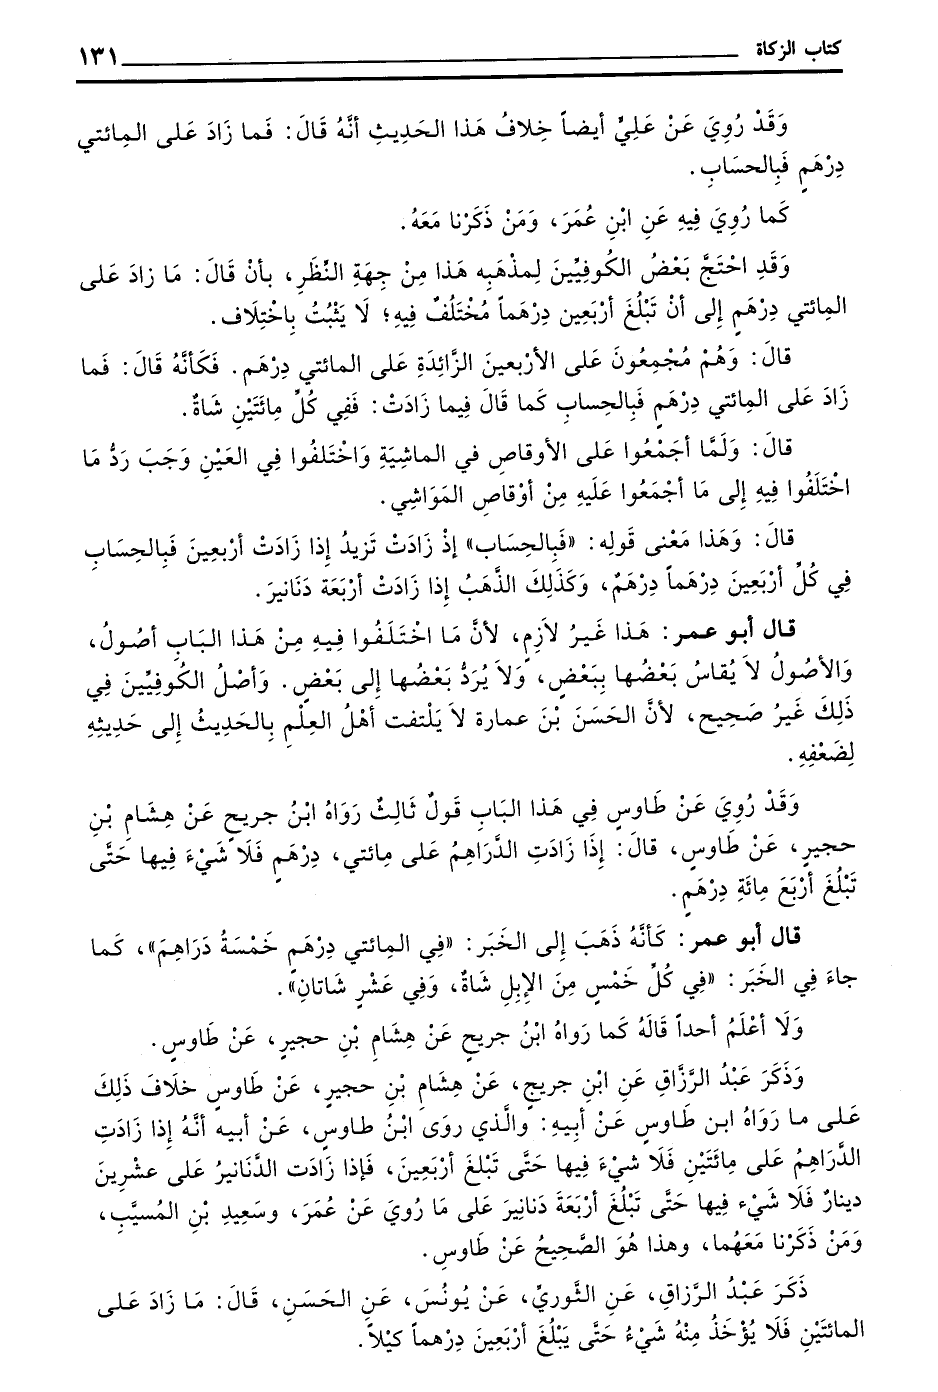 كتاب الزكاة
١٣١
وَقَدْ رُوِيَ عَنْ عَلِيٍّ أيضاً خِلافُ هَذا الحَدِيثِ أنَّهُ قَالَ: فَما زَادَ عَلى المِائتي
دِرْهَمٍ فَبِالحسَابِ.
كَما رُوِيَ فِيهِ عَنِ ابْنِ عُمَرَ، وَمَنْ ذَكَرْنا مَعَهُ.
وَقَدِ احْتَجَّ بَعْضُ الكُوفيِّينَ لِمذْهَبِهِ هَذا مِنْ جِهَةِ النَّظَرِ، بأنْ قَالَ: مَا زادَ عَلى
المِائتي دِرْهَمٍ إلى أنْ تَبْلُغَ أرْبَعِين دِرْهَماً مُخْتَلَفٌ فِيهِ؛ لَا يَثْبُتُ بِاخْتِلَاف.
قالَ: وَهُمْ مُجْمِعُونَ عَلى الأرْبعينَ الزَّائِدَةِ عَلى المائتي دِرْهَم. فَكأنَّهُ قَالَ: فَما
زَادَ عَلى المِائتي دِرْهَمٍ فَبِالحِسابِ كَما قَالَ فِيما زَادَتْ: فَفِي كُلِّ مِائَتَيْنِ شَاةٌ.
قالَ: وَلَمَّا أجْمَعُوا عَلى الأوقاصِ في الماشِيَةِ وَاخْتَلفُوا فِي العَيْنِ وَجَبَ رَدُّ مَا
اخْتَلَفُوا فِيهِ إلى مَا أجْمَعُوا عَلَيهِ مِنْ أوْقاصِ المَوَاشِي.
قالَ: وَهَذا مَعْنى قَولِه: «فَبِالحِسَاب» إذْ زَادَتْ تَزِيدُ إذا زَادَتْ أرْبعِينَ فَبِالحِسَابِ
فِي كُلِّ أرْبَعِينَ دِرْهَماً دِرْهَمٌ، وَكَذلِكَ الذَّهَبُ إذا زَادَتْ أرْبَعَة دَنَانيرَ.
قال أبو عمر: هَذا غَيرُ لازِمٍ، لأنَّ مَا اخْتَلَفُوا فِيهِ مِنْ هَذا البَابِ أصُولٌ،
وَالأصُولُ لاَ يُقاسُ بَعْضُها بِبَعْضٍ، وَلاَ يُرَدُّ بَعْضُها إلى بَعْضٍ. وَأصْلُ الكُوفيِّينَ فِي
ذَلِكَ غَيرُ صَحِيح، لأنَّ الحَسَنَ بْنَ عمارة لاَ يَلْتفت أهْلُ العِلْمِ بِالحَدِيثُ إلى حَدِيثِهِ
لِضَعْفِهِ.
وَقَدْ رُوِيَ عَنْ طَاوسٍ فِي هَذا البَابِ قَولٌ ثَالِثٌ رَوَاهُ ابْنُ جريجٍ عَنْ هِشَامِ بْنِ
حجيرٍ، عَنْ طَاوسٍ، قالَ: إذَا زَادَتِ الدَّرَاهِمُ عَلى مِائتي، دِرْهَمٍ فَلَا شَيْءَ فِيها حَتَّى
تَبْلُغَ أرْبَعَ مِائَةِ دِرْهَمٍ.
قال أبو عمر: كَأنَّهُ ذَهَبَ إلى الخَبَر: «فِي المِائتي دِرْهَمٍ خَمْسَةُ دَرَاهِمَ»، كَما
جاءَ فِي الخَبَر: «فِي كُلِّ خَمْسٍ مِنَ الإبِلِ شَاةٌ، وَفِي عَشْرٍ شَاتانِ».
وَلَا أعْلَمُ أحداً قَالَهُ كَما رَواهُ ابْنُ جريجٍ عَنْ هِشَامِ بْنِ حجيرٍ، عَنْ طَاوسٍ.
وَذَكَرَ عَبْدُ الرَّزَّاقِ عَنِ ابْنِ جريجٍ، عَنْ هِشَامِ بْنِ حجيرٍ، عَنْ طَاوسٍ خلافَ ذَلِكَ
عَلى ما رَوَاهُ ابن طَاوسٍ عَنْ أبِيهِ: والَّذي روَى ابْنُ طاوسٍ، عَنْ أبيه أنَّهُ إذا زَادَتِ
الدَّرَاهِمُ عَلى مِائَتَيْنِ فَلَا شيْءَ فِيها حَتَّى تَبْلغَ أرْبَعِينَ، فَإذا زَادَت الدَّنانيرُ عَلى عشْرِينَ
دينارٌ فَلَا شَيْء فِيها حَتَّى تَبْلُغَ أرْبَعَةَ دَنانيرَ عَلى مَا رُويَ عَنْ عُمَرَ، وسَعِيدِ بْنِ المُسيَّبِ،
وَمَنْ ذَكَرْنا مَعَهُما، وهذا هُوَ الصَّحِيحُ عَنْ طَاوسٍ.
ذَكَرَ عَبْدُ الرَّزاقِ، عَنِ الثَّوريِّ، عَنْ يُونُسَ، عَنِ الحَسَنِ، قَالَ: مَا زَادَ عَلى
المائتَيْنِ فَلَا يُؤْخَذُ مِنْهُ شَيْءُ حَتَّى يَبْلُغَ أرْبَعِينَ دِرْهماً كَيْلاً.